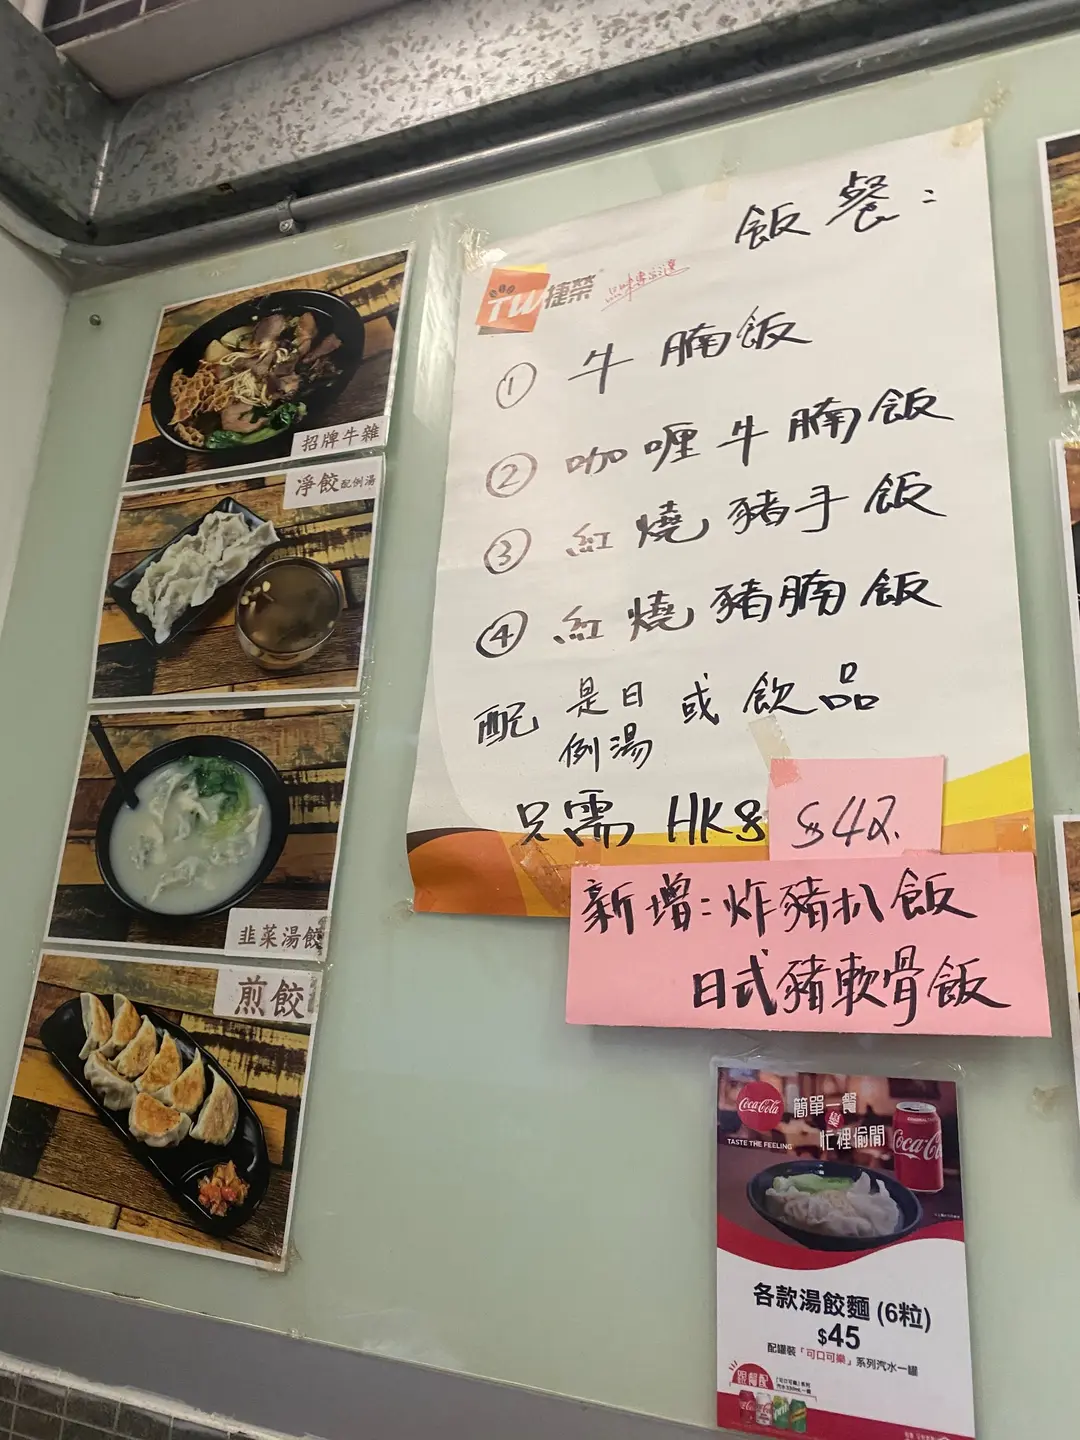 飯餐：
TW 捷榮
① 牛腩飯
② 咖喱牛腩飯
③ 紅燒豬手飯
④ 紅燒豬腩飯
配 是日例湯 或 飲品
只需 HK$ $42.
新增：炸豬扒飯
日式豬軟骨飯
招牌牛雜
淨餃配例湯
韭菜湯餃
煎餃
Coca-Cola
TASTE THE FEELING
簡單一餐
忙裡偷閒
Coca-Co
各款湯餃麵 (6粒)
$45
配罐裝「可口可樂」系列汽水一罐
跟餐配